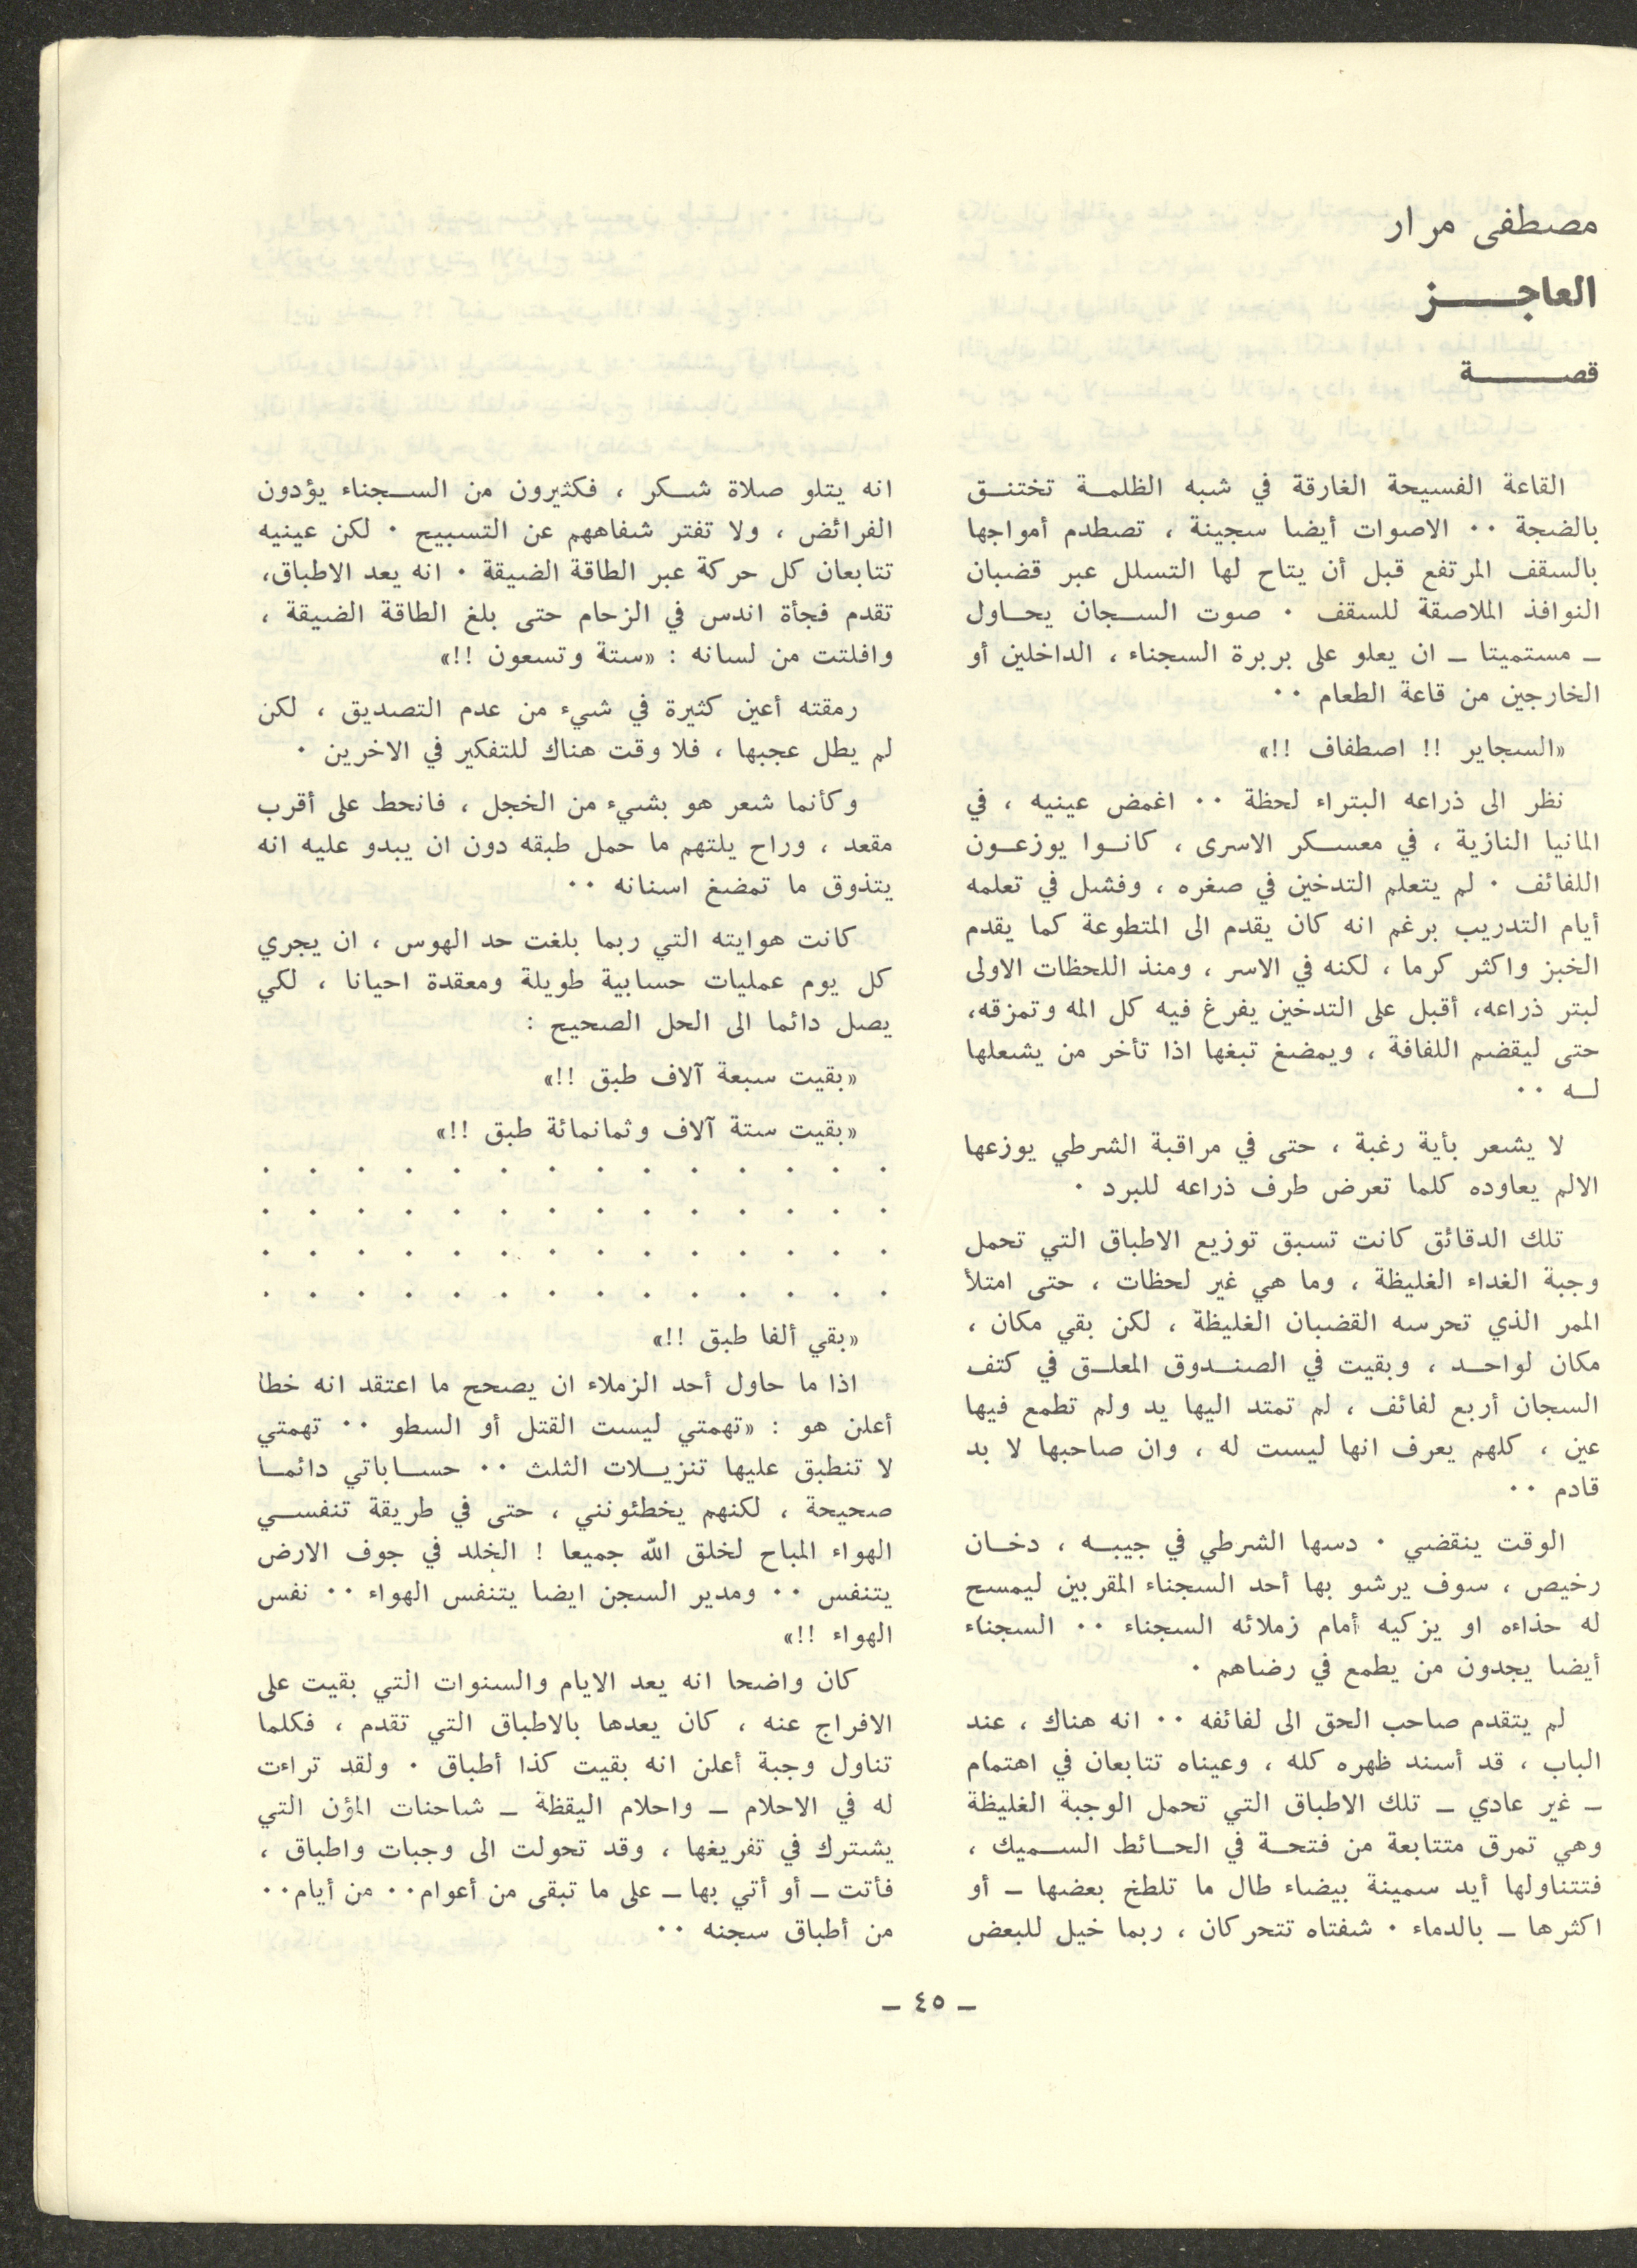 مصطفى مرار
العاجز
قصة
القاعة الفسيحة الغارقة في شبه الظلمة تختنق
بالضجة ٠٠ الاصوات أيضا سجينة ، تصطدم أمواجها
بالسقف المرتفع قبل أن يتاح لها التسلل عبر قضبان
النوافذ الملاصقة للسقف ٠ صوت السجان يحاول
ـ مستميتا ـ ان يعلو على بربرة السجناء ، الداخلين أو
الخارجين من قاعة الطعام ٠٠
«السجاير !! اصطفاف !!»
نظر الى ذراعه البتراء لحظة ٠٠ اغمض عينيه ، في
المانيا النازية ، في معسكر الاسرى ، كانوا يوزعون
اللفائف ٠ لم يتعلم التدخين في صغره ، وفشل في تعلمه
أيام التدريب برغم انه كان يقدم الى المتطوعة كما يقدم
الخبز واكثر كرما ، لكنه في الاسر ، ومنذ اللحظات الاولى
لبتر ذراعه، أقبل على التدخين يفرغ فيه كل المه وتمزقه،
حتى ليقضم اللفافة ، ويمضغ تبغها اذا تأخر من يشعلها
له ٠٠
لا يشعر بأية رغبة ، حتى في مراقبة الشرطي يوزعها
الالم يعاوده كلما تعرض طرف ذراعه للبرد ٠
تلك الدقائق كانت تسبق توزيع الاطباق التي تحمل
وجبة الغداء الغليظة ، وما هي غير لحظات ، حتى امتلأ
الممر الذي تحرسه القضبان الغليظة ، لكن بقي مكان ،
مكان لواحد ، وبقيت في الصندوق المعلق في كتف
السجان أربع لفائف ، لم تمتد اليها يد ولم تطمع فيها
عين ، كلهم يعرف انها ليست له ، وان صاحبها لا بد
قادم ٠٠
الوقت ينقضي ٠ دسها الشرطي في جيبه ، دخان
رخيص ، سوف يرشو بها أحد السجناء المقربين ليمسح
له حذاءه او يزكيه أمام زملائه السجناء ٠٠ السجناء
أيضا يجدون من يطمع في رضاهم ٠
لم يتقدم صاحب الحق الى لفائفه ٠٠ انه هناك ، عند
الباب ، قد أسند ظهره كله ، وعيناه تتابعان في اهتمام
ـ غير عادي ـ تلك الاطباق التي تحمل الوجبة الغليظة
وهي تمرق متتابعة من فتحة في الحائط السميك ،
فتتناولها أيد سمينة بيضاء طال ما تلطخ بعضها ـ أو
اكثرها ـ بالدماء ٠ شفتاه تتحركان ، ربما خيل للبعض
انه يتلو صلاة شكر ، فكثيرون من السجناء يؤدون
الفرائض ، ولا تفتر شفاههم عن التسبيح ٠ لكن عينيه
تتابعان كل حركة عبر الطاقة الضيقة ٠ انه يعد الاطباق،
تقدم فجأة اندس في الزحام حتى بلغ الطاقة الضيقة ،
وافلتت من لسانه : «ستة وتسعون !!»
رمقته أعين كثيرة في شيء من عدم التصديق ، لكن
لم يطل عجبها ، فلا وقت هناك للتفكير في الاخرين ٠
وكأنما شعر هو بشيء من الخجل ، فانحط على أقرب
مقعد ، وراح يلتهم ما حمل طبقه دون ان يبدو عليه انه
يتذوق ما تمضغ اسنانه ٠٠
كانت هوايته التي ربما بلغت حد الهوس ، ان يجري
كل يوم عمليات حسابية طويلة ومعقدة احيانا ، لكي
يصل دائما الى الحل الصحيح :
«بقيت سبعة آلاف طبق !!»
«بقيت ستة آلاف وثمانمائة طبق !!»
٠ ٠ ٠ ٠ ٠ ٠ ٠ ٠ ٠ ٠ ٠ ٠ ٠ ٠
٠ ٠ ٠ ٠ ٠ ٠ ٠ ٠ ٠ ٠ ٠ ٠ ٠ ٠
٠ ٠ ٠ ٠ ٠ ٠ ٠ ٠ ٠ ٠ ٠ ٠ ٠ ٠
٠ ٠ ٠ ٠ ٠ ٠ ٠ ٠ ٠ ٠ ٠ ٠ ٠ ٠
«بقي ألفا طبق !!»
اذا ما حاول أحد الزملاء ان يصحح ما اعتقد انه خطا
أعلن هو : «تهمتي ليست القتل أو السطو ٠٠ تهمتي
لا تنطبق عليها تنزيلات الثلث ٠٠ حساباتي دائما
صحيحة ، لكنهم يخطئونني ، حتى في طريقة تنفسي
الهواء المباح لخلق الله جميعا ! الخلد في جوف الارض
يتنفس ٠٠ ومدير السجن ايضا يتنفس الهواء ٠٠ نفس
الهواء !!»
كان واضحا انه يعد الايام والسنوات التي بقيت على
الافراج عنه ، كان يعدها بالاطباق التي تقدم ، فكلما
تناول وجبة أعلن انه بقيت كذا أطباق ٠ ولقد تراءت
له في الاحلام ـ واحلام اليقظة ـ شاحنات المؤن التي
يشترك في تفريغها ، وقد تحولت الى وجبات واطباق ،
فأتت ـ أو أتي بها ـ على ما تبقى من أعوام٠٠ من أيام٠٠
من أطباق سجنه ٠٠
ـ ٤٥ ـ